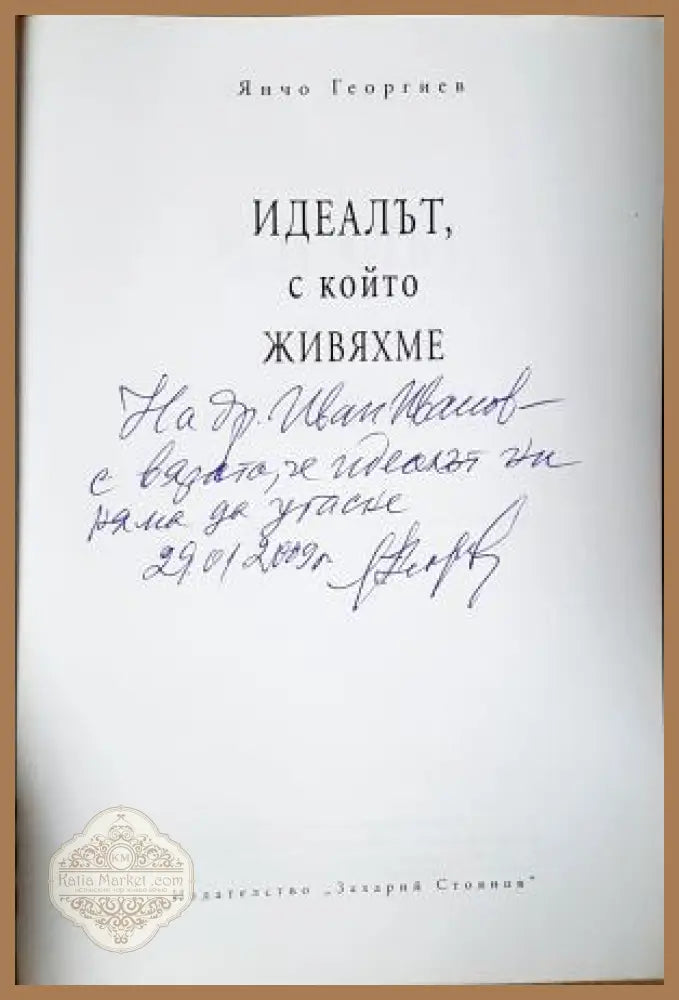 Янчо Георгиев
ИДЕАЛЪТ,
с който
ЖИВЯХМЕ
На др. Иван Иванов –
с вярата, че идеалът ни
няма да угасне
29.01.2009г.
KM
Katia Market .com
Издателство „Захарий Стоянов“